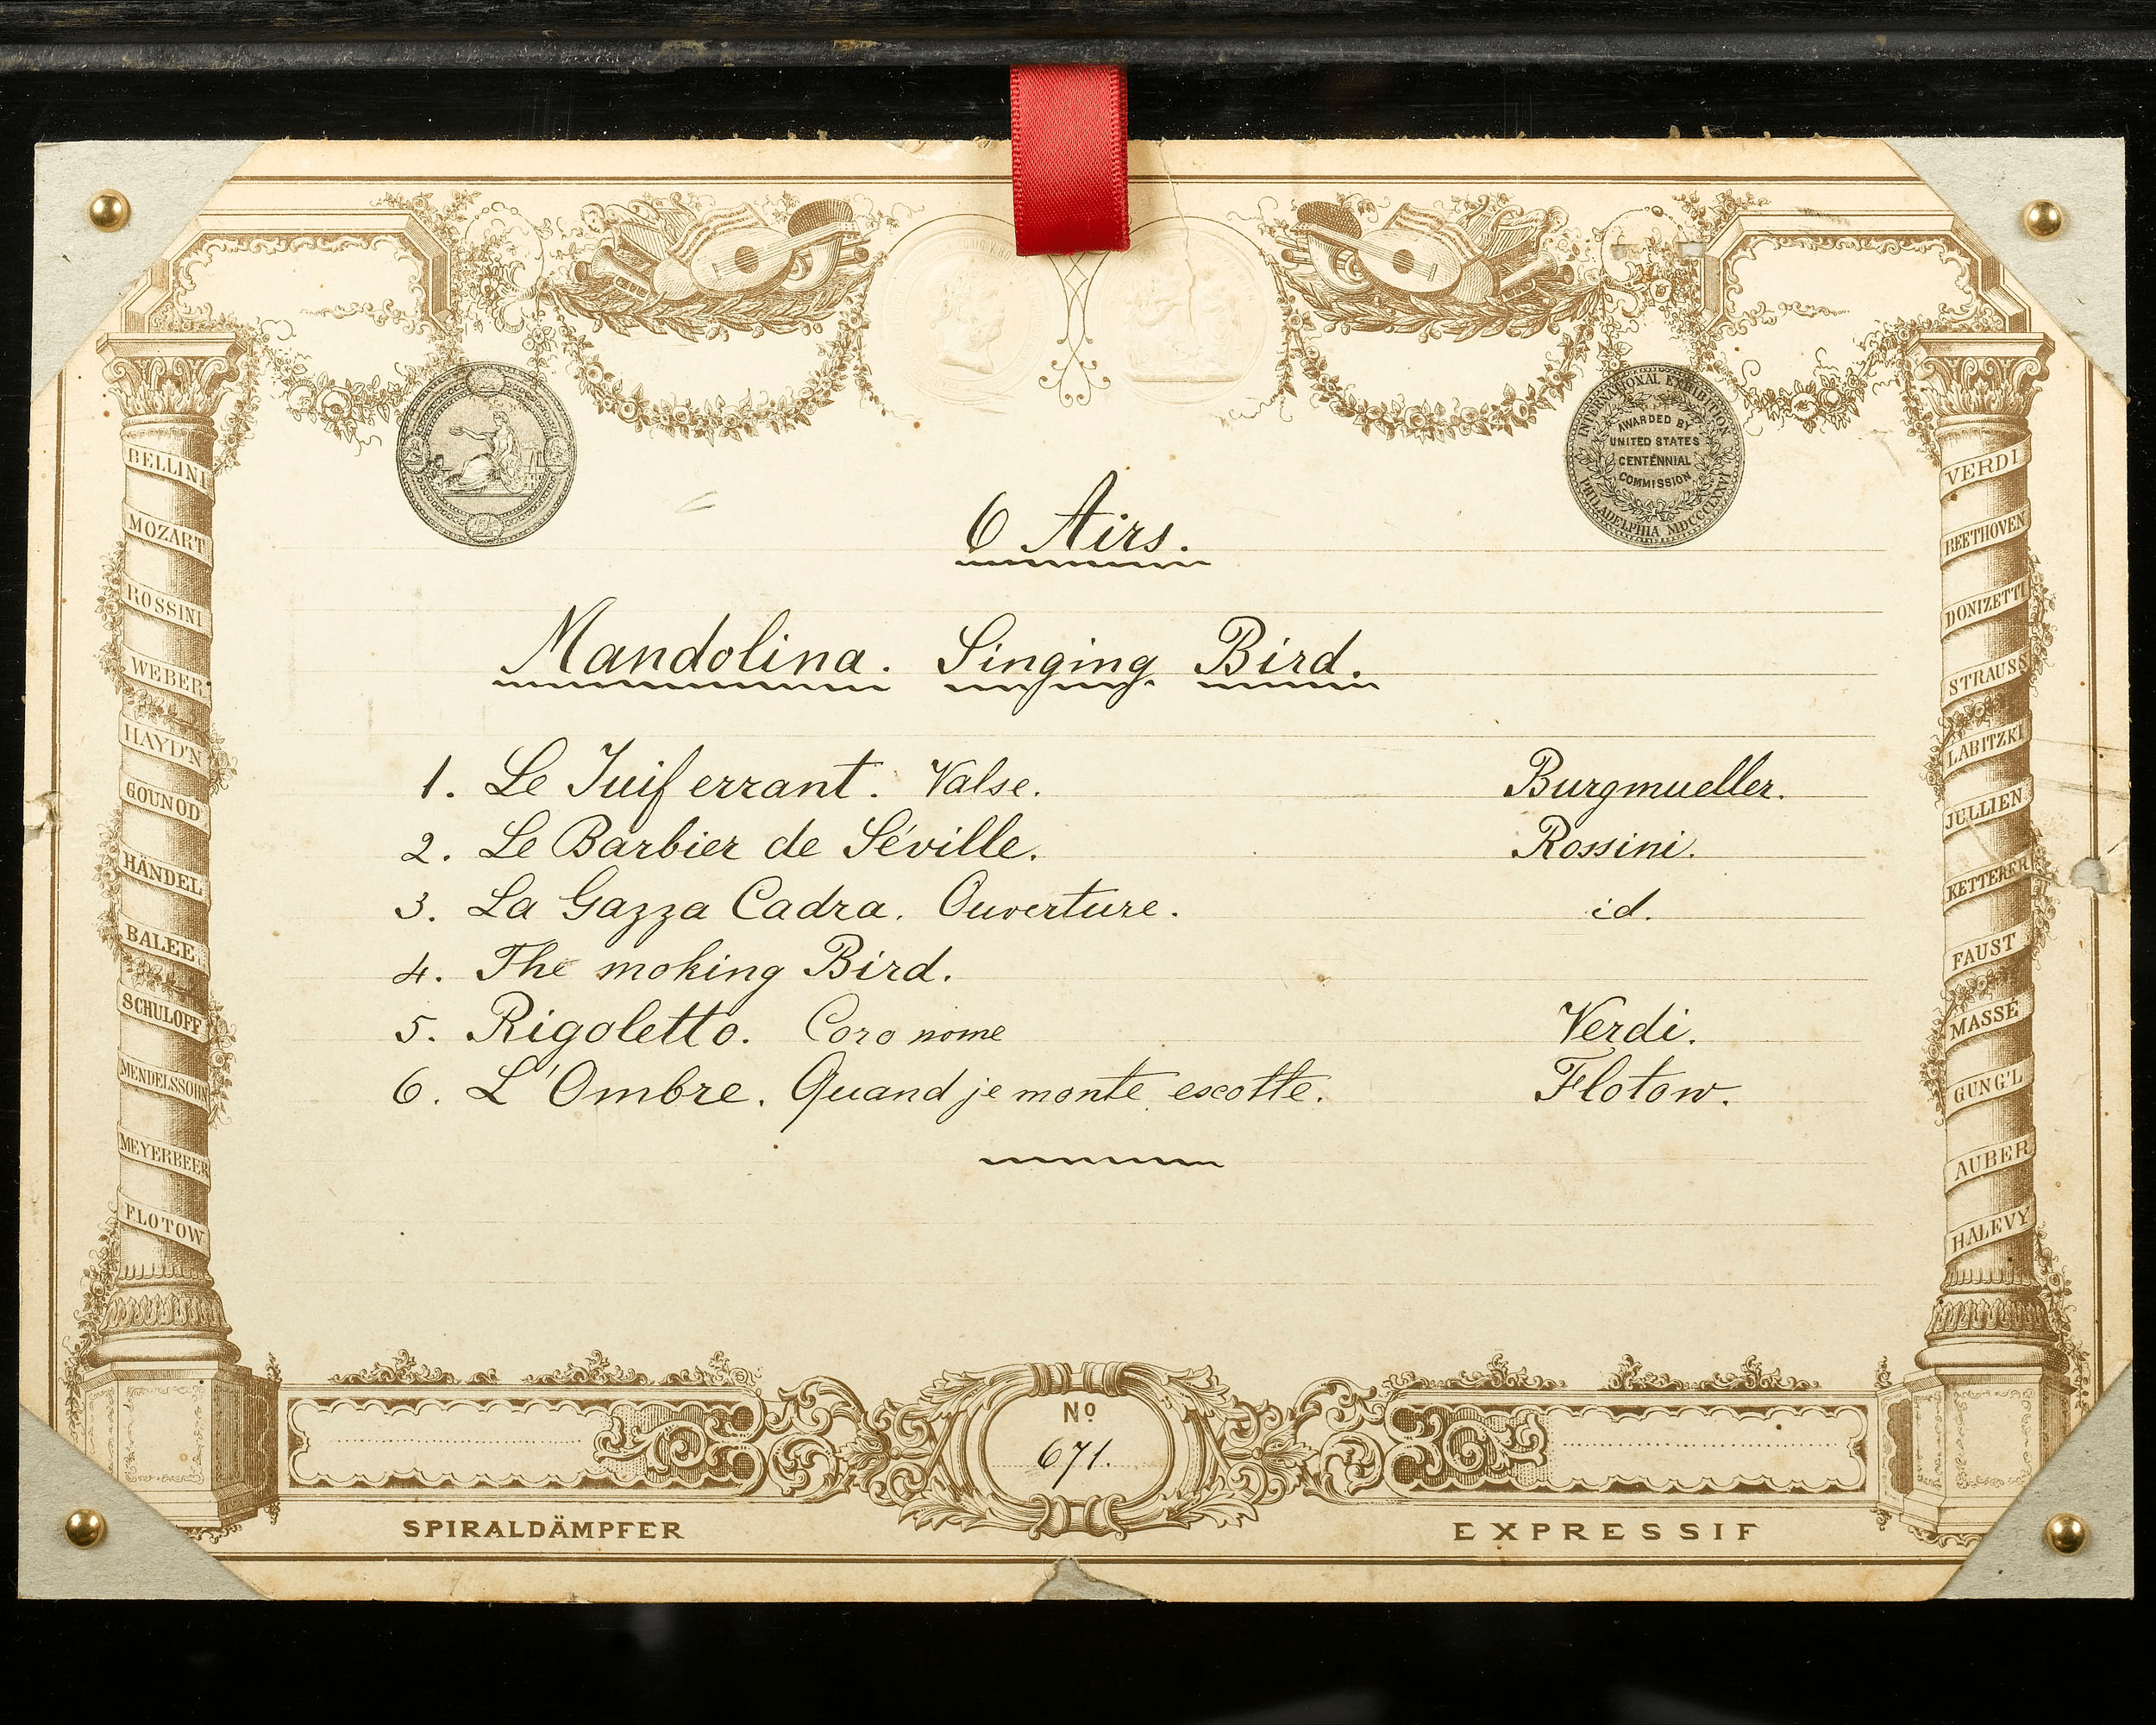 INTERNATIONAL EXHIBITION
AWARDED BY
UNITED STATES
CENTENNIAL
COMMISSION
PHILADELPHIA MDCCCLXXVI
6 Airs.
Mandolina. Singing Bird.
1. Le Juif errant. Valse. Burgmueller.
2. Le Barbier de Séville. Rossini.
3. La Gazza Cadra. Ouverture. id.
4. The moking Bird.
5. Rigoletto. Coro nome Verdi.
6. L'Ombre. Quand je monte escotte. Flotow.
BELLINI
MOZART
ROSSINI
WEBER
HAYD'N
GOUNOD
HÄNDEL
BALEE
SCHULOFF
MENDELSSOHN
MEYERBEER
FLOTOW
VERDI
BEETHOVEN
DONIZETTI
STRAUSS
LABITZKI
JULLIEN
KETTERER
FAUST
MASSÉ
GUNG'L
AUBER
HALEVY
Nº
671.
SPIRALDÄMPFER
EXPRESSIF